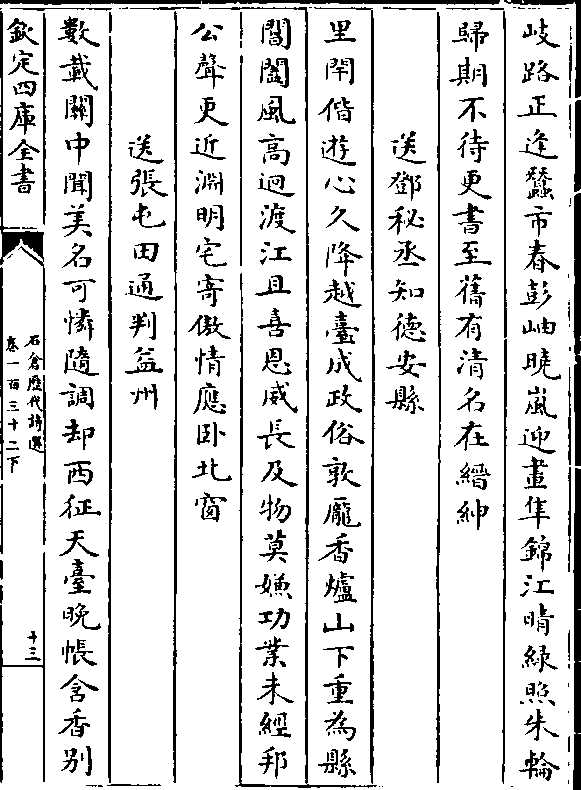 岐路正逢蠶市春彭岫曉嵐迎畫隼錦江晴綠照朱輪
歸期不待更書至舊有清名在縉紳
送鄧秘丞知德安縣
里閈偕遊心久降越臺成政俗敦龎香爐山下重為縣
閶闔風高迥渡江且喜恩威長及物莫嫌功業未經邦
公聲更近淵明宅寄傲情應卧北窗
送張屯田通判益州
數載關中聞美名可憐隨調却西征天臺晚帳含香别
欽定四庫全書
石倉歷代詩選
卷一百三十二下
十三